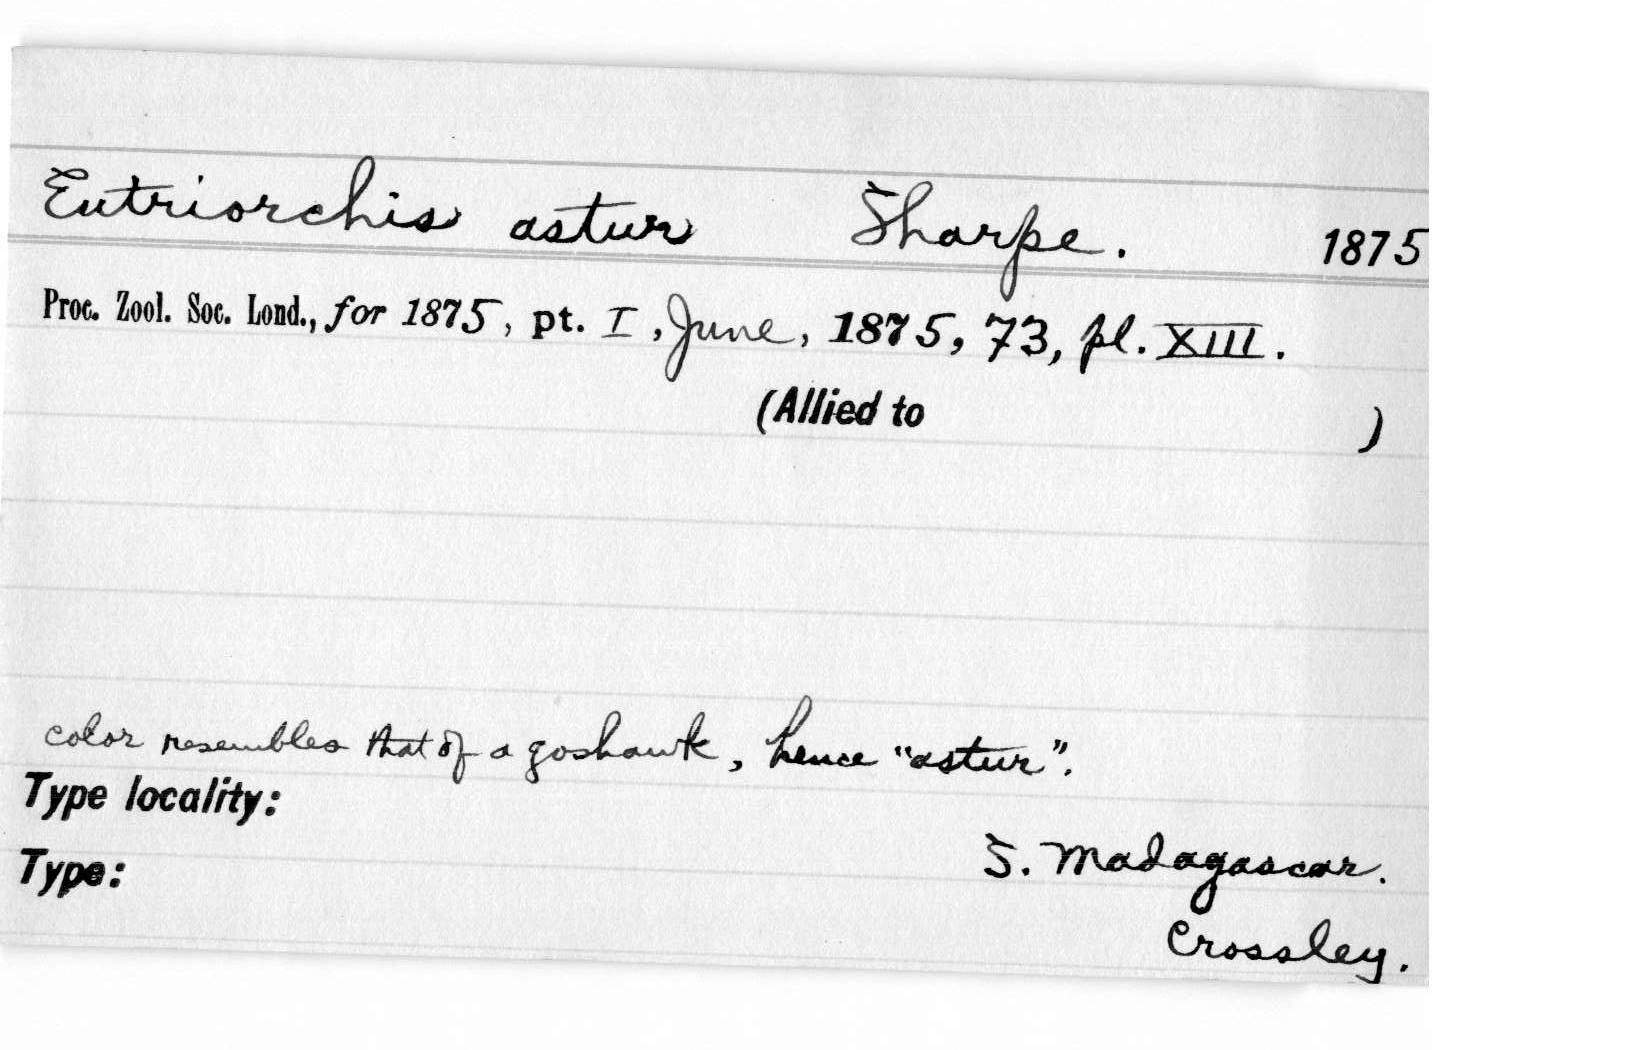 Eutriorchis astur Sharpe. 1875
Proc. Zool. Soc. Lond., for 1875, pt. I, June, 1875, 73, pl. XIII.
(Allied to )
color resembles that of a goshawk, hence "astur".
Type locality:
S. Madagascar.
Type:
Crossley.